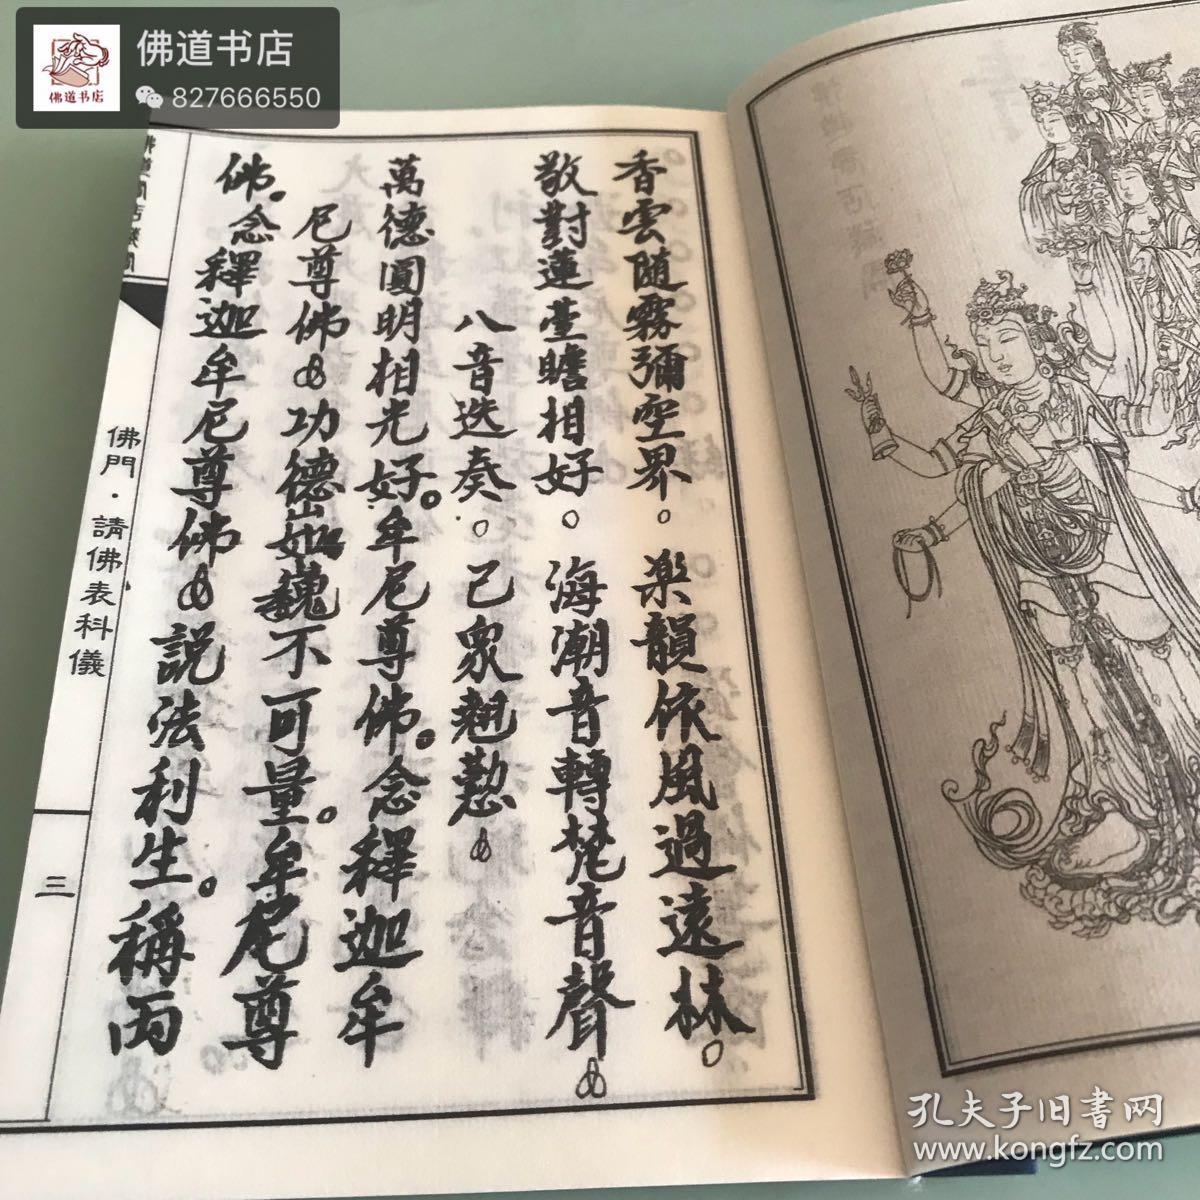 佛道书店
827666550
佛道书店
香雲随霧彌空界。楽韻依風過遠林。
敬對蓮臺瞻相好。海潮音轉梵音聲
八音迭奏。己眾翹懃
萬德圓明相光好。牟尼尊佛。念釋迦牟
尼尊佛 功德如巍不可量。牟尼尊
佛。念釋迦牟尼尊佛 説法利生。稱兩
佛門·請佛表科儀
三
孔夫子旧书网
www.kongfz.com